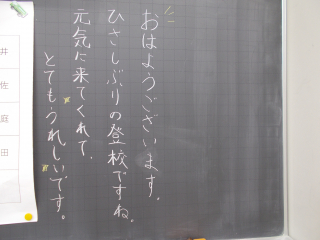 おはようございます。
ひさしぶりの登校ですね。
元気に来てくれて、
とてもうれしいです。
井
佐
庭
田